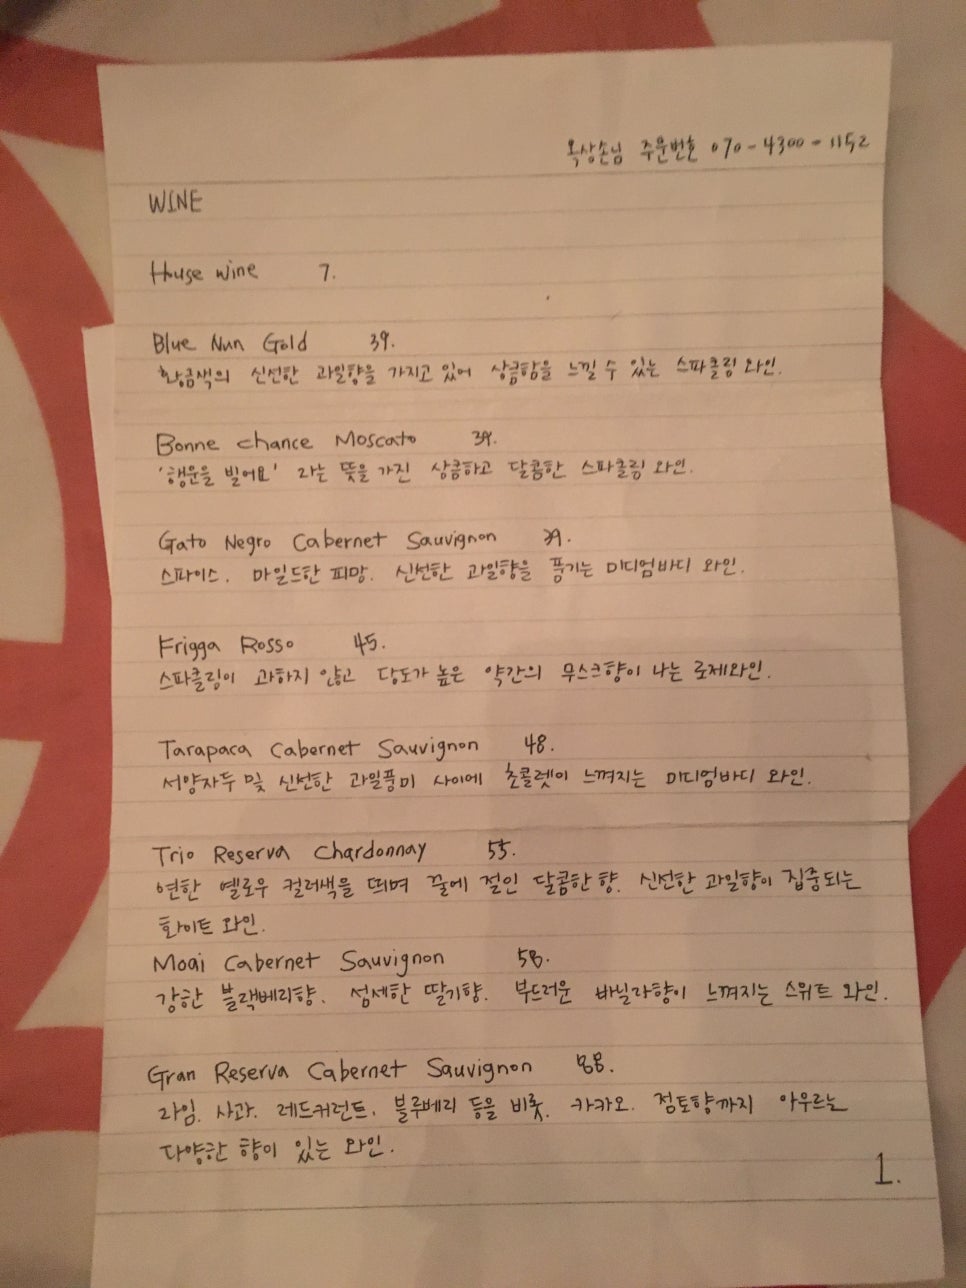 옥상손님 주문번호 070-4300-1152
WINE
House wine 7.
Blue Nun Gold 39.
황금색의 신선한 과일향을 가지고 있어 상큼함을 느낄 수 있는 스파클링 와인.
Bonne chance Moscato 39.
'행운을 빌어요' 라는 뜻을 가진 상콤하고 달콤한 스파클링 와인.
Gato Negro Cabernet Sauvignon 39.
스파이스. 마일드한 피망. 신선한 과일향을 풍기는 미디엄바디 와인.
Frigga Rosso 45.
스파클링이 과하지 않고 당도가 높은 약간의 무스크향이 나는 로제와인.
Tarapaca Cabernet Sauvignon 48.
서양자두 및 신선한 과일풍미 사이에 초콜렛이 느껴지는 미디엄바디 와인.
Trio Reserva Chardonnay 55.
연한 옐로우 컬러색을 띄며 꿀에 절인 달콤한 향. 신선한 과일향이 집중되는
화이트 와인.
Moai Cabernet Sauvignon 58.
강한 블랙베리향. 섬세한 딸기향. 부드러운 바닐라향이 느껴지는 스위트 와인.
Gran Reserva Cabernet Sauvignon 88.
라임. 사과. 레드커런트. 블루베리 등을 비롯. 카카오. 점토향까지 아우르는
다양한 향이 있는 와인.
1.